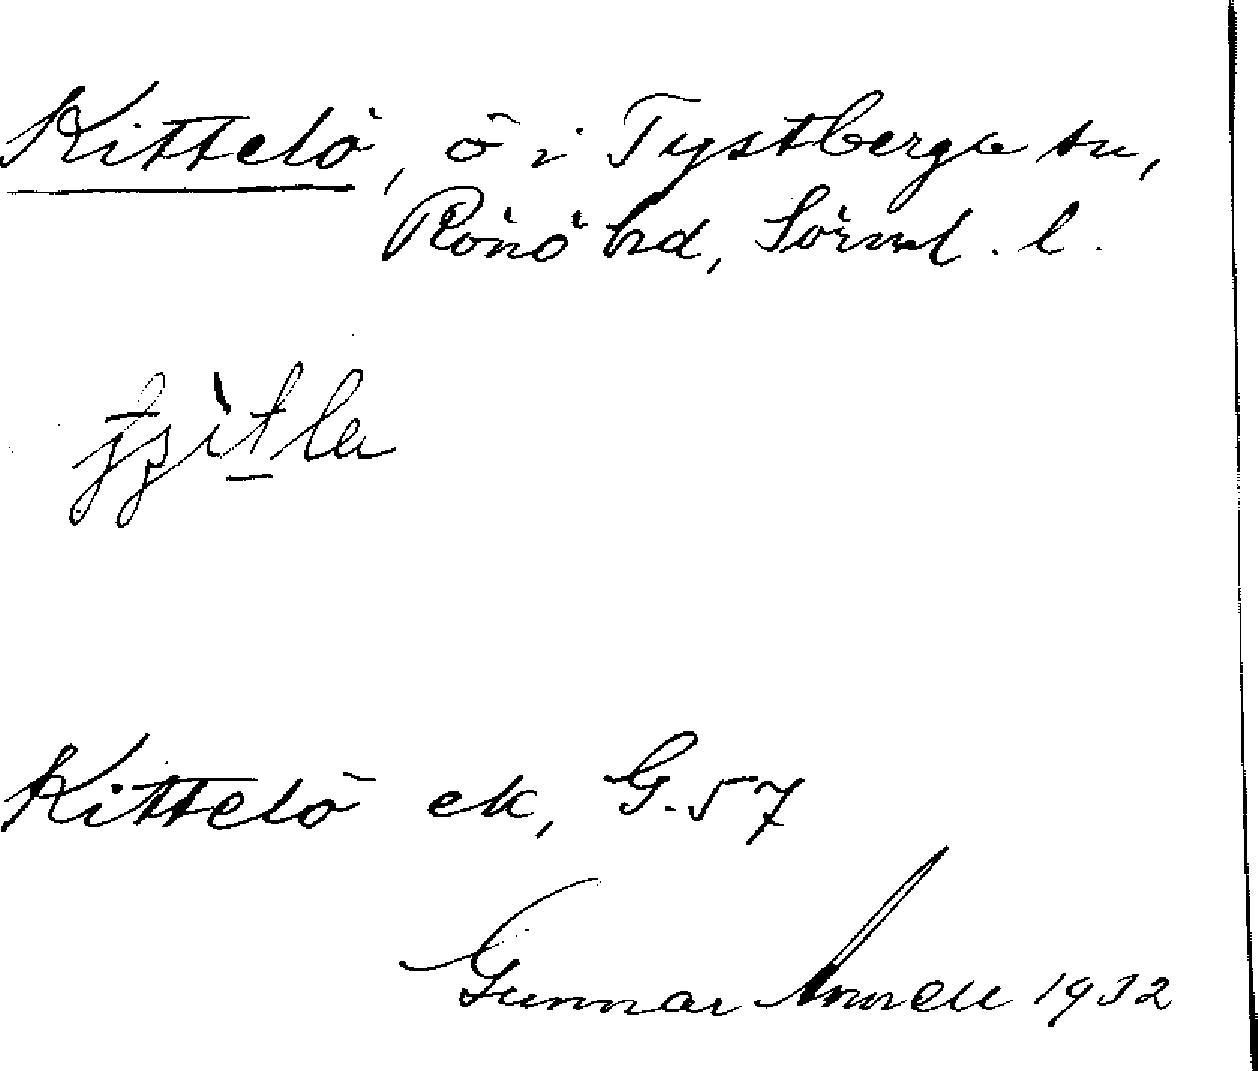 Kittelö, ö i Tystberga sn,
Rönö hd, Sörml. l.
Kittelö ek, G. 57
Gunnar 1932